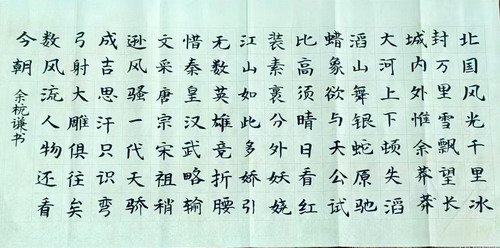 北国风光千里冰
封万里雪飘望长
城内外惟余莽莽
大河上下顿失滔
滔山舞银蛇原驰
蜡象欲与天公试
比高须晴日看红
装素裹分外妖娆
江山如此多娇引
无数英雄竞折腰
惜秦皇汉武略输
文采唐宗宋祖稍
逊风骚一代天骄
成吉思汗只识弯
弓射大雕俱往矣
数风流人物还看
今朝
余谦书